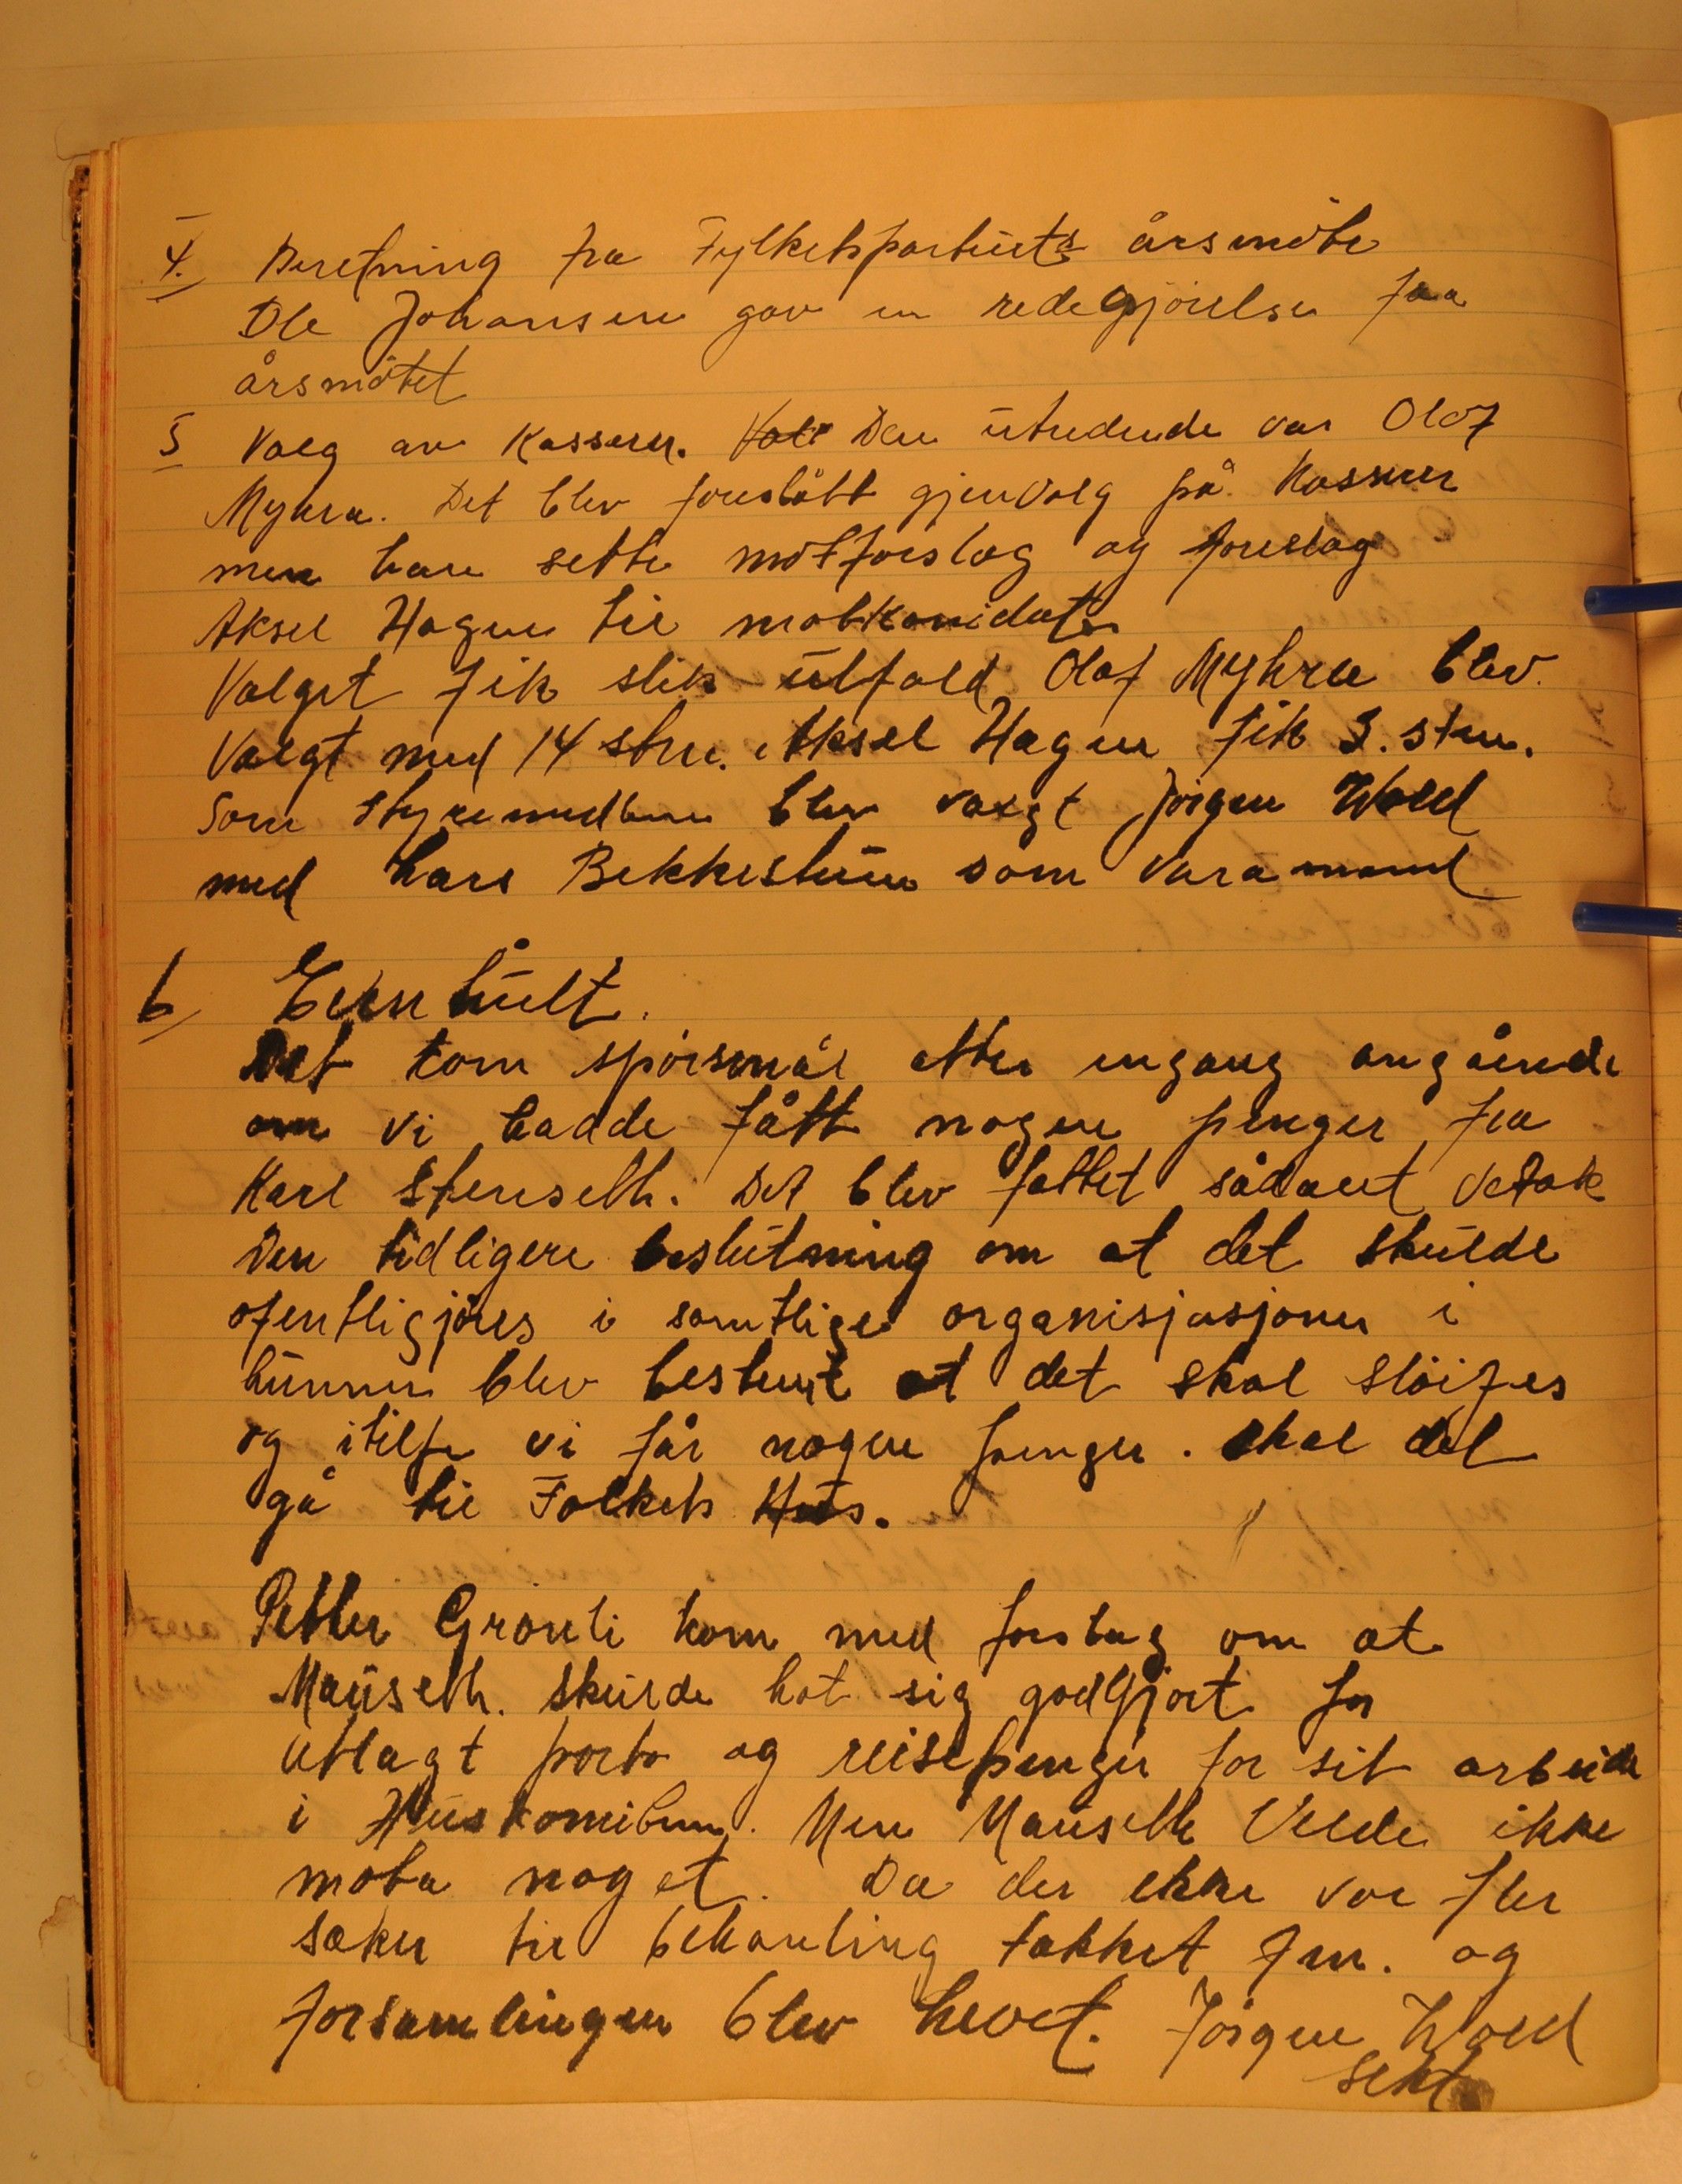 4. Beretning fra Fylketspartiets årsmöte
Ole Johansen gav en redegjörelse fra
årsmötet
5 Valg av Kasserer. Den utredende var Olaf
Myhra. Det blev foreslått gjenvalg på Kasserer
men han sette motforslag og foreslog
Aksel Hagen til motkanidat
Valget fik slik utfald Olaf Myhre blev
Valgt med 14 stm. Aksel Hagen fik 3. stm.
Som styremedlem blev valgt Jörgen Wold
med Lars Bekkestuen som Varamand
6 Eventuelt.
Det kom spörsmål atter engang angående
om vi hadde fått nogen penger fra
Karl Stenseth. Det blev fattet sådant Vetak
Den tidligere beslutning om at det skulde
ofentligjöres i samtlige organisjasjoner i
hunner blev bestemt at det skal slöifes
og itilfe vi får nogen penger. skal det
gå til Folkets Hus.
Petter Grönli kom med forslag om at
Mauseth. skulde hat sig godtgjort for
Utlagt porto og reisepenger for sit arbeide
i Huskomiteen. Men Mauseth Vilde ikke
mota noget. Da der ikke var fler
saker til behanling takket fm. og
forsamlingen blev hevet. Jörgen Wold
Sekt